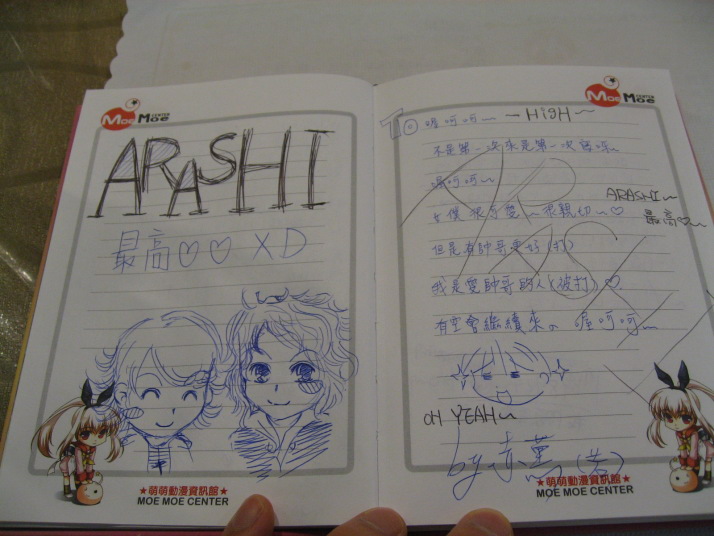 Moe Moe CENTER
ARASHI
最高♡♡ XD
★萌萌動漫資訊館★
MOE MOE CENTER
Moe Moe CENTER
To. 喔呵呵~ — HigH~
不是第一次來是第一次寫啊~
喔呵呵~
ARASHI~
女僕很可愛~很親切~♡
最高♡~
但是有帥哥更好(打)
我是愛帥哥的人(被打)♡
有空會繼續來。喔呵呵~
OH YEAH~
by.赤
★萌萌動漫資訊館★
MOE MOE CENTER